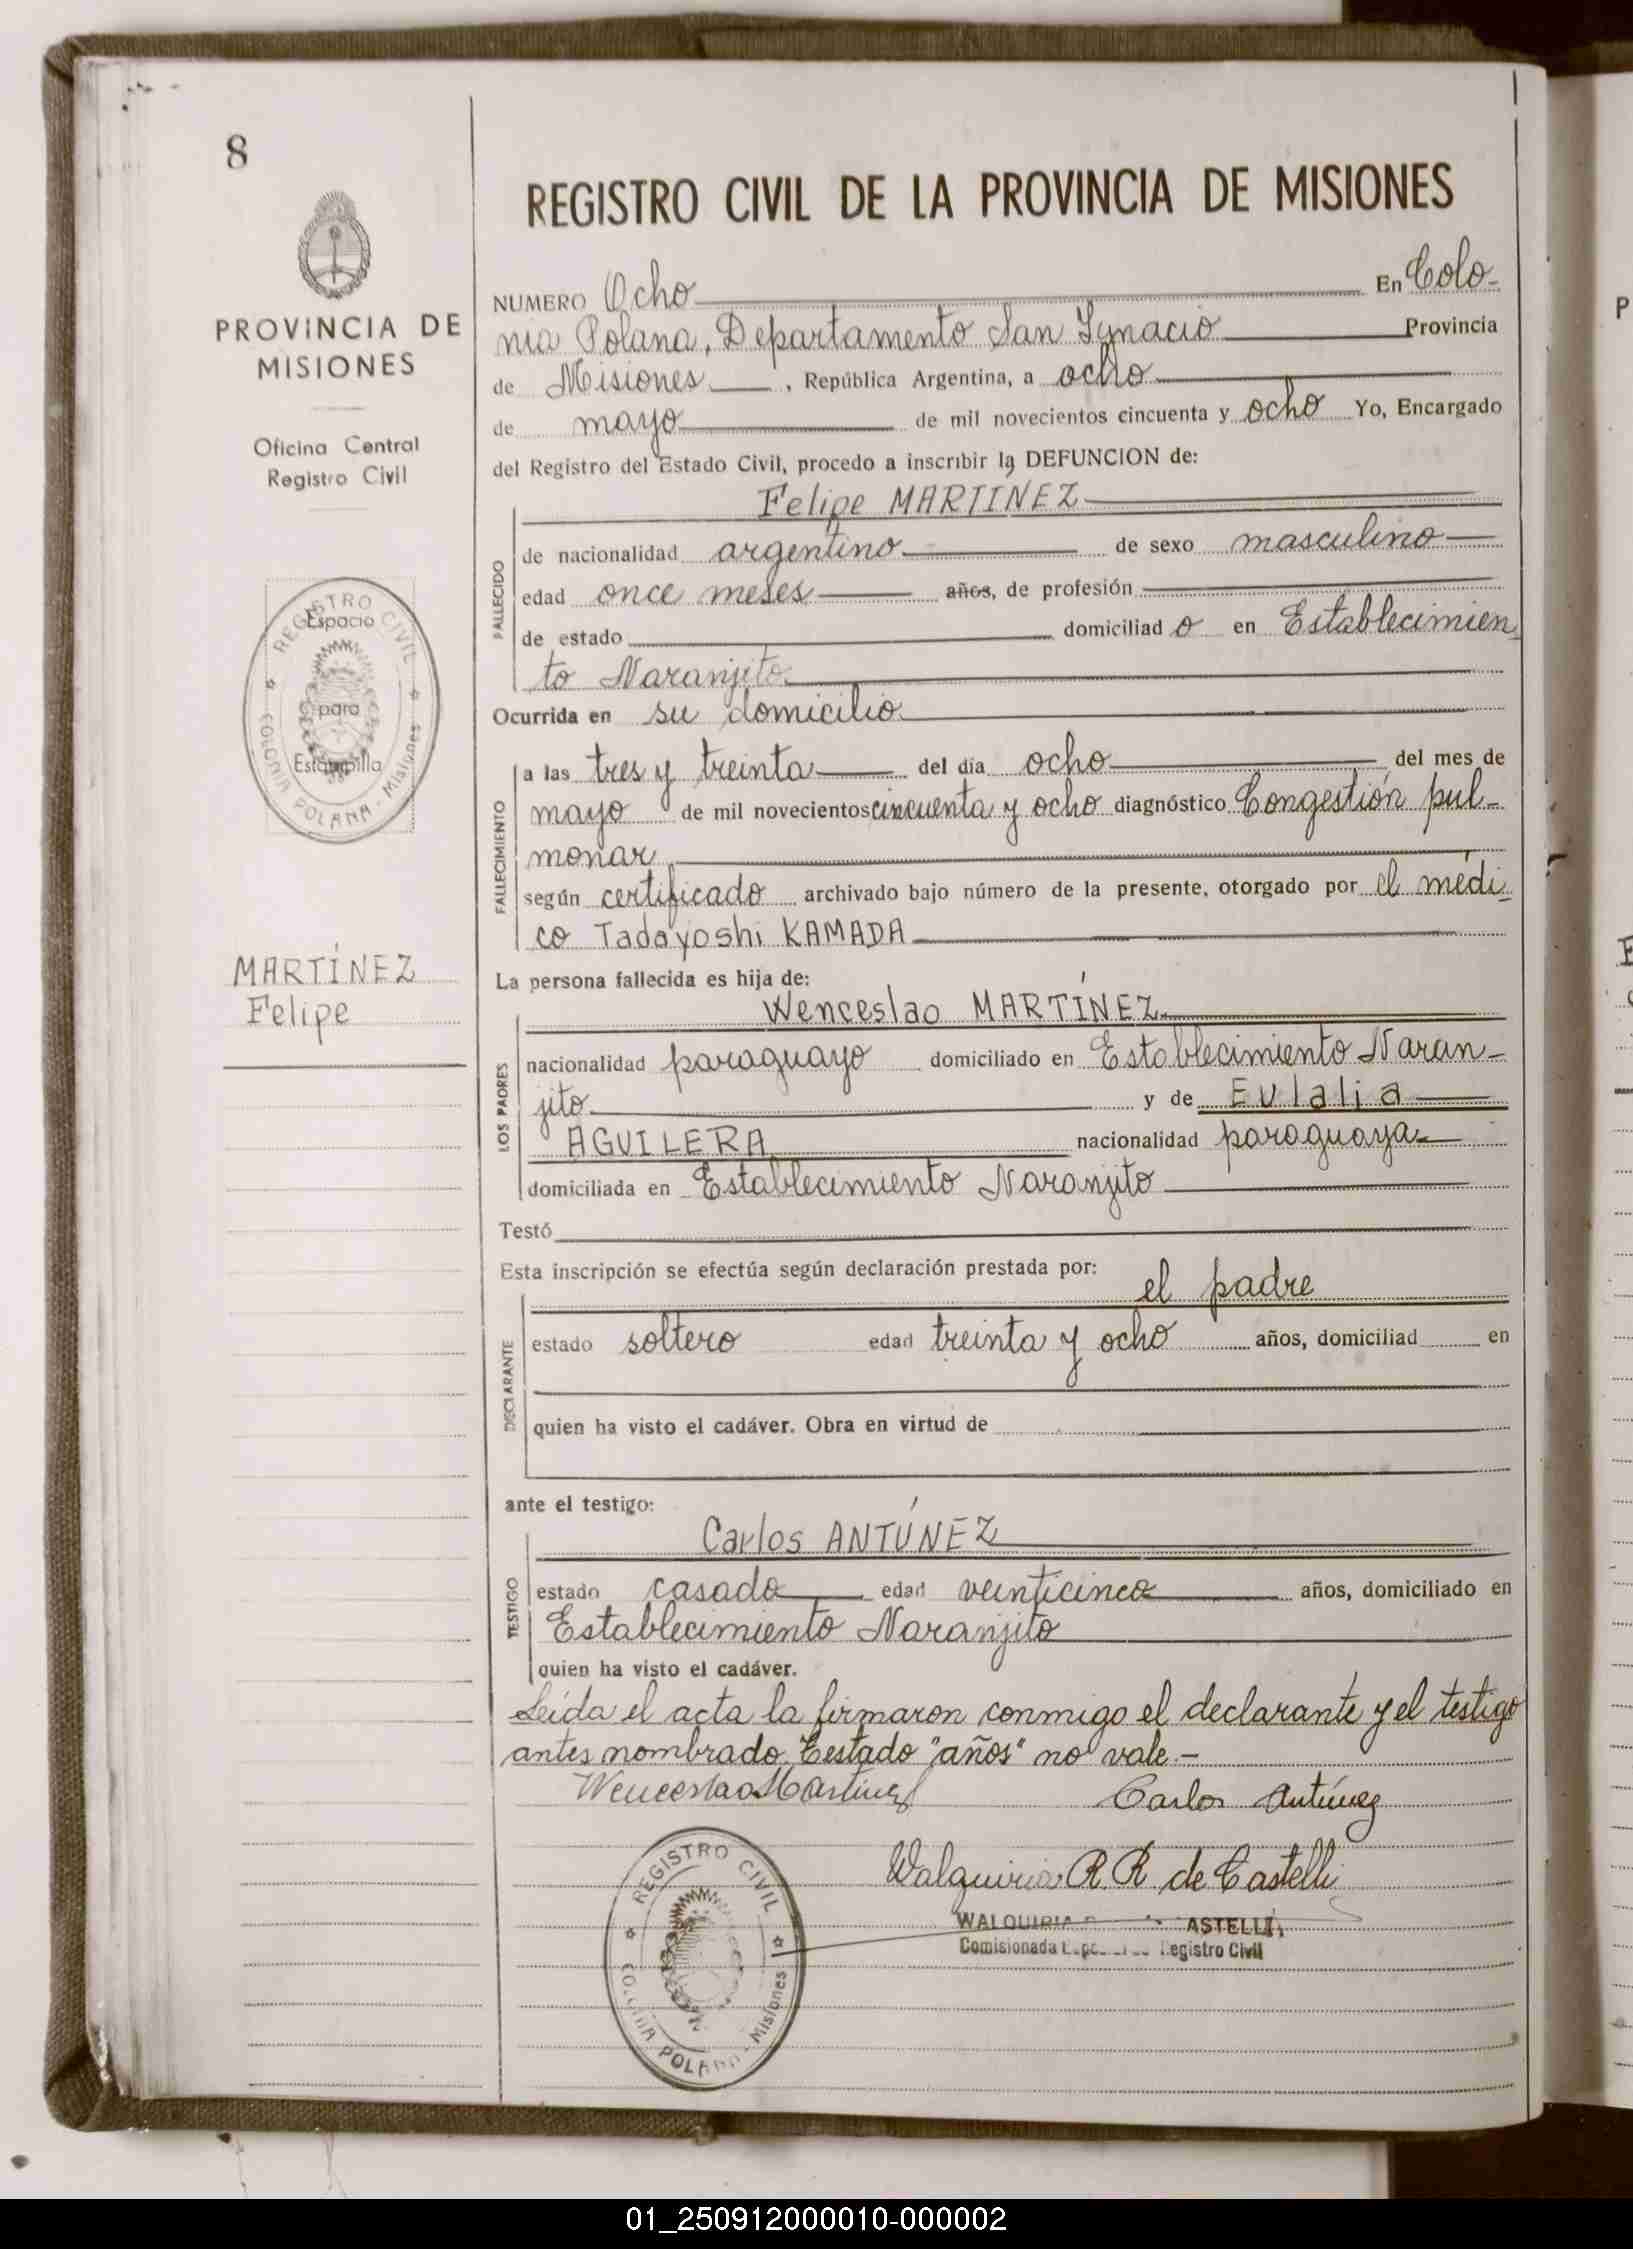 8
PROVINCIA DE
MISIONES
Oficina Central
Registro Civil
REGISTRO CIVIL
Espacio
para
Estampilla
COLONIA POLANA - Misiones
MARTÍNEZ
Felipe
REGISTRO CIVIL DE LA PROVINCIA DE MISIONES
NUMERO Ocho En Colo-
nia Polana, Departamento San Ignacio Provincia
de Misiones, República Argentina, a ocho
de mayo de mil novecientos cincuenta y ocho Yo, Encargado
del Registro del Estado Civil, procedo a inscribir la DEFUNCION de:
Felipe MARTÍNEZ
FALLECIDO
de nacionalidad argentino de sexo masculino
edad once meses años, de profesión
de estado domiciliad o en Establecimien
to Naranjito
Ocurrida en su domicilio
FALLECIMIENTO
a las tres y treinta del día ocho del mes de
mayo de mil novecientos cincuenta y ocho diagnóstico Congestión pul-
monar
según certificado archivado bajo número de la presente, otorgado por el médi
co Tadayoshi KAMADA
La persona fallecida es hija de:
Wenceslao MARTÍNEZ
LOS PADRES
nacionalidad paraguayo domiciliado en Establecimiento Naran-
jito y de Eulalia
AGUILERA nacionalidad paraguaya
domiciliada en Establecimiento Naranjito
Testó
Esta inscripción se efectúa según declaración prestada por:
el padre
DECLARANTE
estado soltero edad treinta y ocho años, domiciliad en
quien ha visto el cadáver. Obra en virtud de
ante el testigo:
Carlos ANTÚNEZ
TESTIGO
estado casado edad veinticinco años, domiciliado en
Establecimiento Naranjito
quien ha visto el cadáver.
Leída el acta la firmaron conmigo el declarante y el testigo
antes nombrado. Testado "años" no vale.-
Wenceslao Martinez Carlos Antúnez
Walquiria R. R. de Castelli
WALQUIRIA ASTELLI
Comisionada Registro Civil
REGISTRO CIVIL
COLONIA POLANA - Misiones
01_250912000010-000002